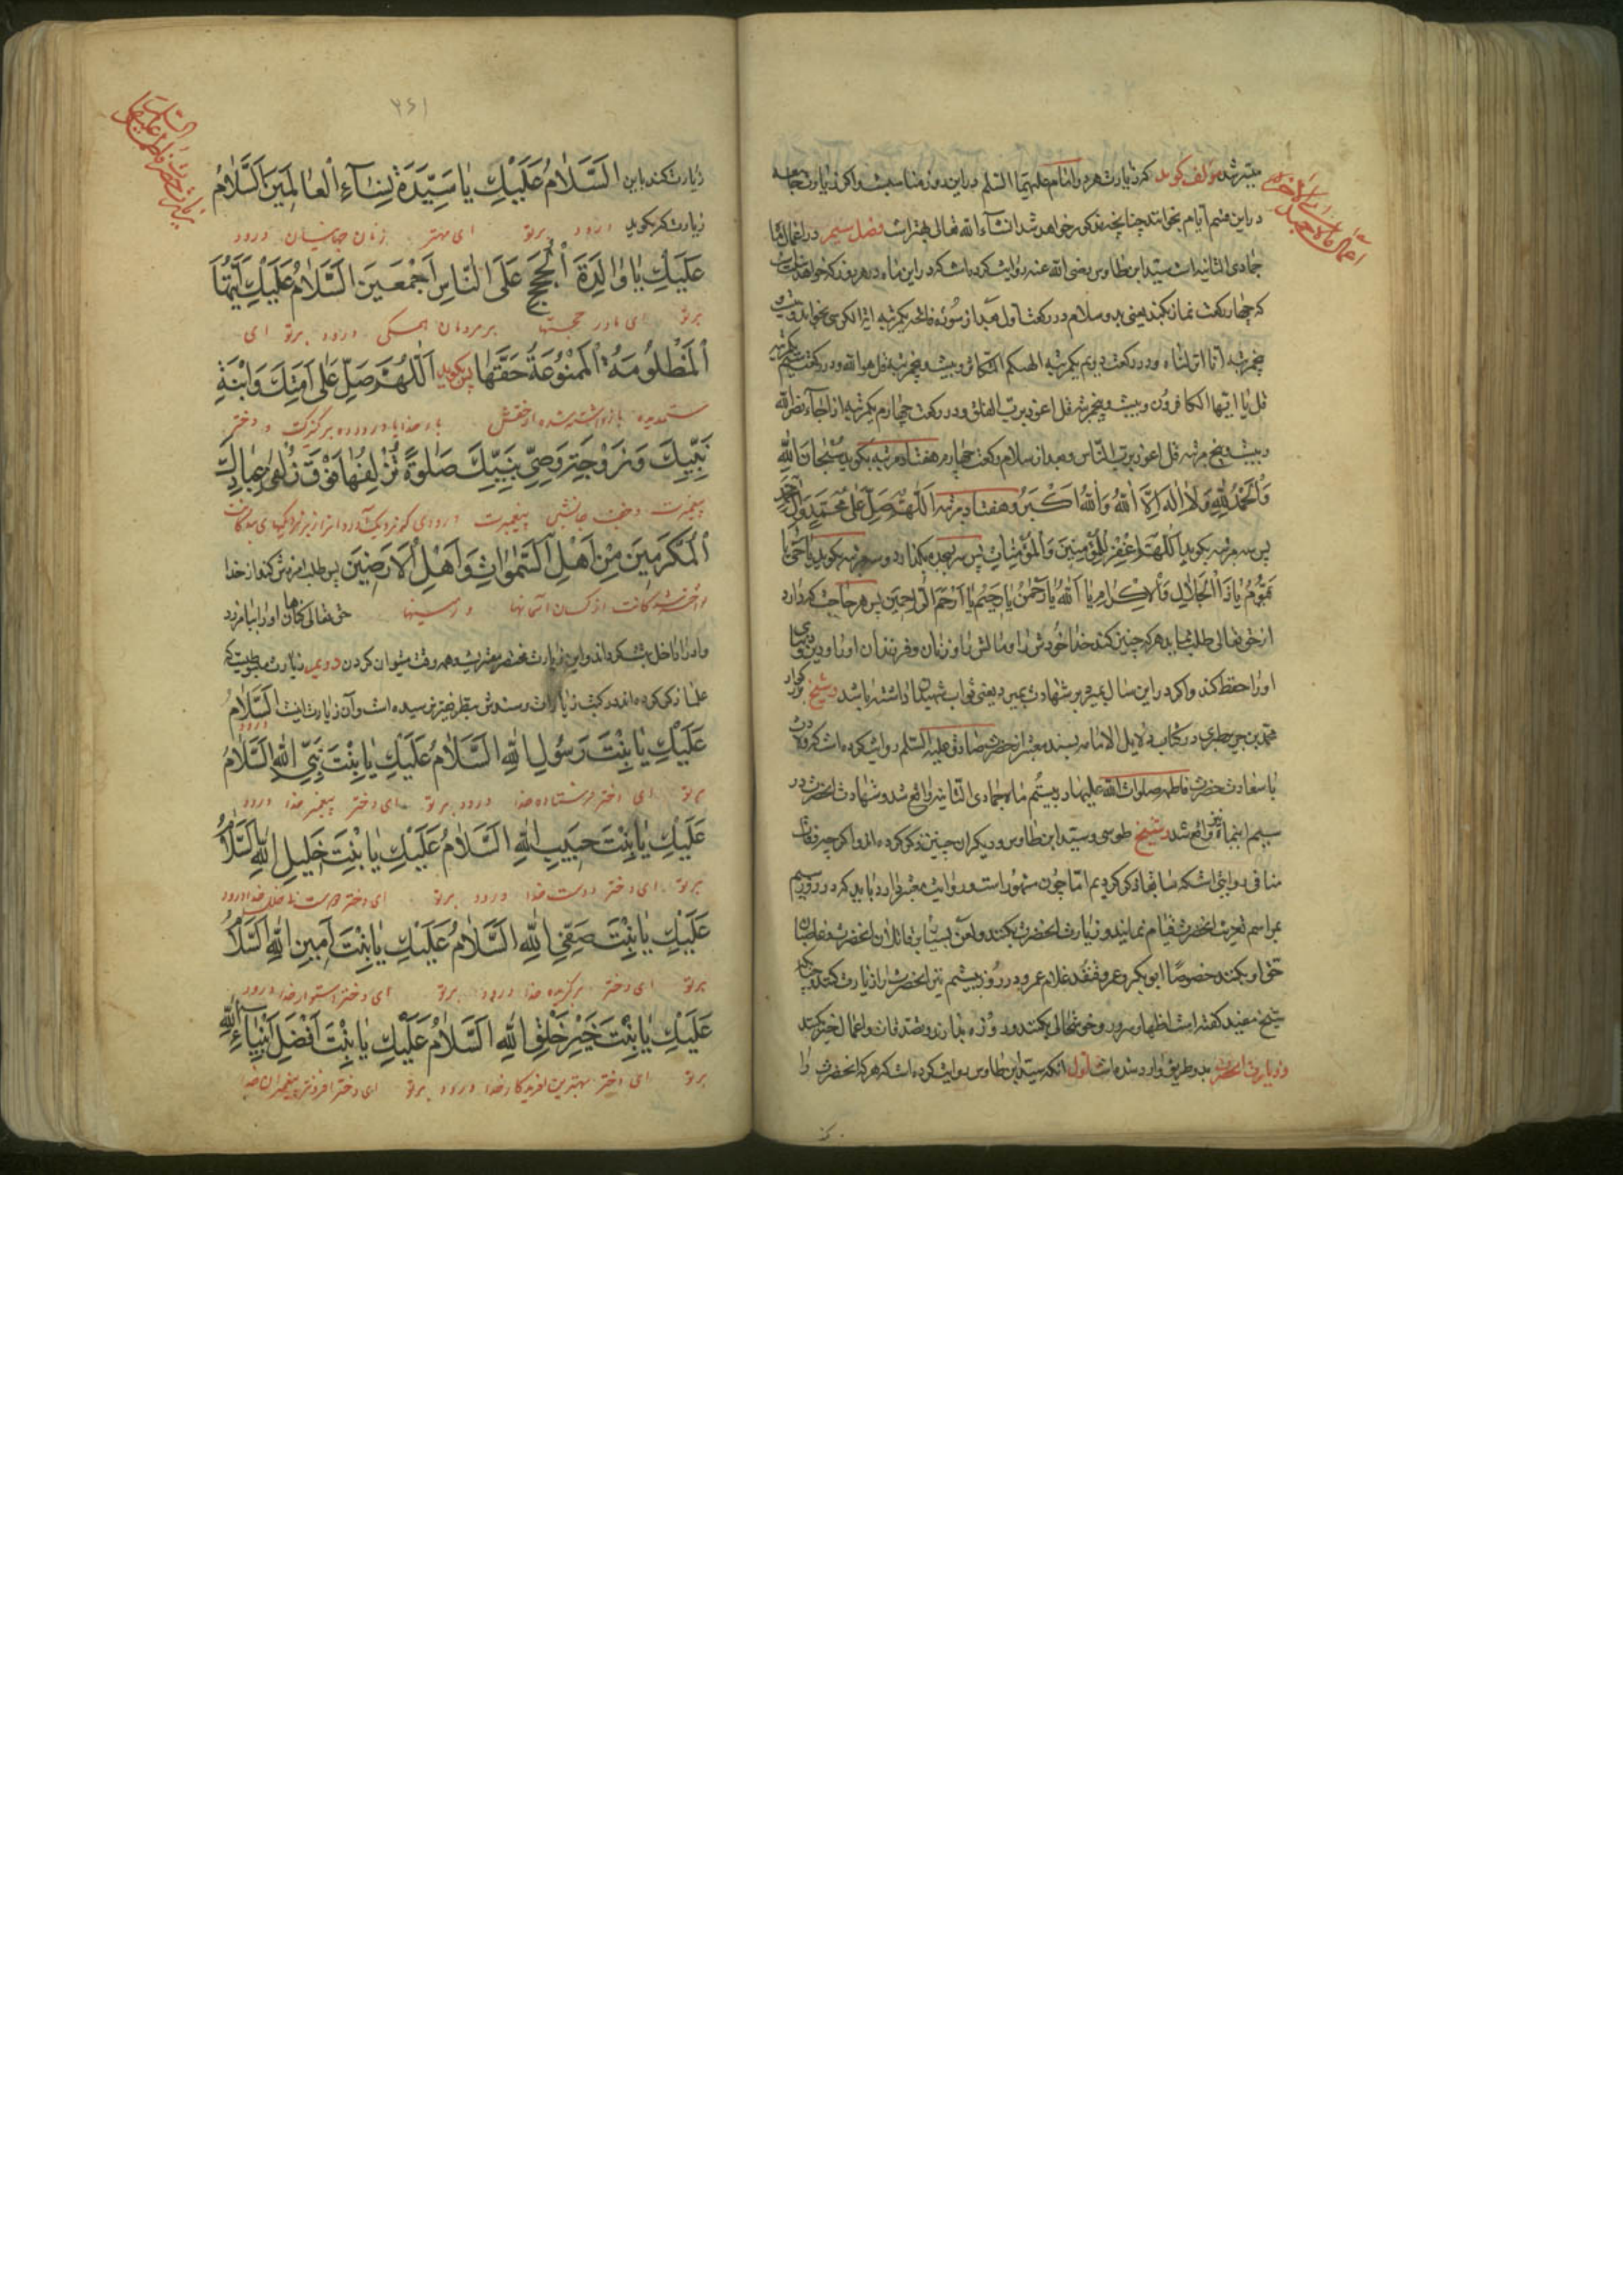 میسر شد مؤلف گوید که زیارت هر دو امام علیهما السلم در این روز مناسبست و اگر زیارت جامعه
در این متیم ایام بخوانند چنانچه مذکور خواهد شد انشآء الله تعالی بهتر است فصل سیم در اعمال ماه
جمادی الثانیه است سید ابن طاوس رضی الله عنه روایت کرده است که در این ماه در هر روز که خواهد
که چهار رکعت نماز بکند یعنی بدو سلام در رکعت اول بعد از سوره فاتحه یکمرتبه آیة الکرسی بخواند و بیست و
پنجمرتبه انا انزلناه و در رکعت دویم یکمرتبه الهیکم التکاثر و بیست و پنجمرتبه قل هو الله و در رکعت سیم یکمرتبه
قل یا ایها الکافرون و بیست و پنجمرتبه قل اعوذ برب الفلق و در رکعت چهارم یکمرتبه اذا جآء نصر الله
و بیست و پنج مرتبه قل اعوذ برب الناس و بعد از سلام رکعت چهارم هفتاد مرتبه بگوید سُبْحانَ اللهِ
وَالْحَمْدُ لِلهِ وَلا اِلهَ اِلَّا اللهُ وَاللهُ اَكْبَرُ و هفتاد مرتبه اَللّهُمَّ صَلِّ عَلى مُحَمَّدٍ وَآلِ مُحَمَّدٍ
پس سه مرتبه بگوید اَللّهُمَّ اغْفِرْ لِلْمُؤْمِنينَ وَالْمُؤْمِناتِ پس سر بسجده میگذارد و سه مرتبه بگوید یا حَیُّ یا
قَیُّومُ یا ذَا الْجَلالِ وَالْاِكْرامِ یا اَللهُ یا رَحْمنُ یا رَحیمُ یا اَرْحَمَ الرّاحِمینَ پس هر حاجت که دارد
از حق تعالی طلب نماید هر که چنین کند خدا خودش را و مالش را و زنان و فرزندان او را و دین و دنیای
او را حفظ کند و اگر در این سال بمیرد بر شهادت بمیرد یعنی ثواب شهیدان داشته باشد و شیخ بزرگوار
محمد بن جریر طبری در کتاب دلایل الامامه بسند معتبر از حضرت صادق علیه السلم روایت کرده است که ولادت
با سعادت حضرت فاطمه صلوات الله علیها در بیستم ماه جمادی الثانیه واقع شد و شهادت انحضرت در
سیم اینماه واقع شد و شیخ طوسی و سید ابن طاوس و دیگران چنین ذکر کرده اند و اگر چه وفات
منافی روایتی است که سابقا ذکر کردیم اما چون مشهور است و روایت معتبر وارد باید که در روز سیم
بمراسم تعزیت انحضرت قیام نمایند و زیارت انحضرت بکنند و لعن بسیار بر قاتلان انحضرت و غاصبان
حق او بکنند خصوصًا ابو بکر و عمر و قنفذ غلام عمر و در روز بیستم نیز انحضرت را زیارت کنند و چنانکه
شیخ مفید گفته است اظهار سرور و خوشحالی بکنند و روزه بدارند و تصدقات و اعمال خیر بکنند
و زیارت انحضرت بدو طریق وارد شده است اول انکه سید ابن طاوس روایت کرده است که هر که انحضرت را
۲۶۱
زیارت کند باین اَلسَّلامُ عَلَیْكِ یا سَیِّدَةَ نِسآءِ الْعالَمینَ اَلسَّلامُ
زیارت که بگوید درود بر تو ای مهتر زنان جهانیان درود
عَلَیْكِ یا والِدَةَ الْحُجَجِ عَلَی النّاسِ اَجْمَعینَ اَلسَّلامُ عَلَیْكِ اَیَّتُهَا
بر تو ای مادر حجتها بر مردمان همگی درود بر تو ای
الْمَظْلُومَةُ الْمَمْنُوعَةُ حَقَّها پس بگوید اَللّهُمَّ صَلِّ عَلى اَمَتِكَ وَابْنَةِ
ستمدیده بازداشته شده از حقش بار خدایا درود ده بر کنیزکت و دختر
نَبِیِّكَ وَزَوْجَةِ وَصِیِّ نَبِیِّكَ صَلوةً تُزْلِفُها فَوْقَ زُلْفی عِبادِكَ
پیغمبرت و جفت جانشین پیغمبرت درودی که نزدیک آورد او را زبر نزدیکیهای بندگانت
الْمُكَرَّمینَ مِنْ اَهْلِ السَّمواتِ وَاَهْلِ الْاَرَضینَ پس طلب امرزش کند از خدا
از کسان آسمانها و زمینها حق تعالی گناهان او را بیامرزد
و او را داخل بهشت کرداند و این زیارت مختصر معتبریست و همه وقت میتوان کردن دویم زیارت مبسوطیست که
علما ذکر کرده اند در کتب زیارات و سندش بنظر فقیر نرسیده است و آن زیارت اینست اَلسَّلامُ
درود
عَلَیْكِ یا بِنْتَ رَسُولِ اللهِ اَلسَّلامُ عَلَیْكِ یا بِنْتَ نَبِیِّ اللهِ اَلسَّلامُ
بر تو ای دختر فرستاده خدا درود بر تو ای دختر پیغمبر خدا درود
عَلَیْكِ یا بِنْتَ حَبیبِ اللهِ اَلسَّلامُ عَلَیْكِ یا بِنْتَ خَلیلِ اللهِ اَلسَّلامُ
بر تو ای دختر دوست خدا درود بر تو ای دختر دوست خدا درود
عَلَیْكِ یا بِنْتَ صَفِیِّ اللهِ اَلسَّلامُ عَلَیْكِ یا بِنْتَ اَمینِ اللهِ اَلسَّلامُ
بر تو ای دختر برگزیده خدا درود بر تو ای دختر استوار خدا درود
عَلَیْكِ یا بِنْتَ خَیْرِ خَلْقِ اللهِ اَلسَّلامُ عَلَیْكِ یا بِنْتَ اَفْضَلِ اَنْبِیآءِ اللهِ
بر تو ای دختر بهترین افریدگار خدا درود بر تو ای دختر افزونتر پیغمبران خدا